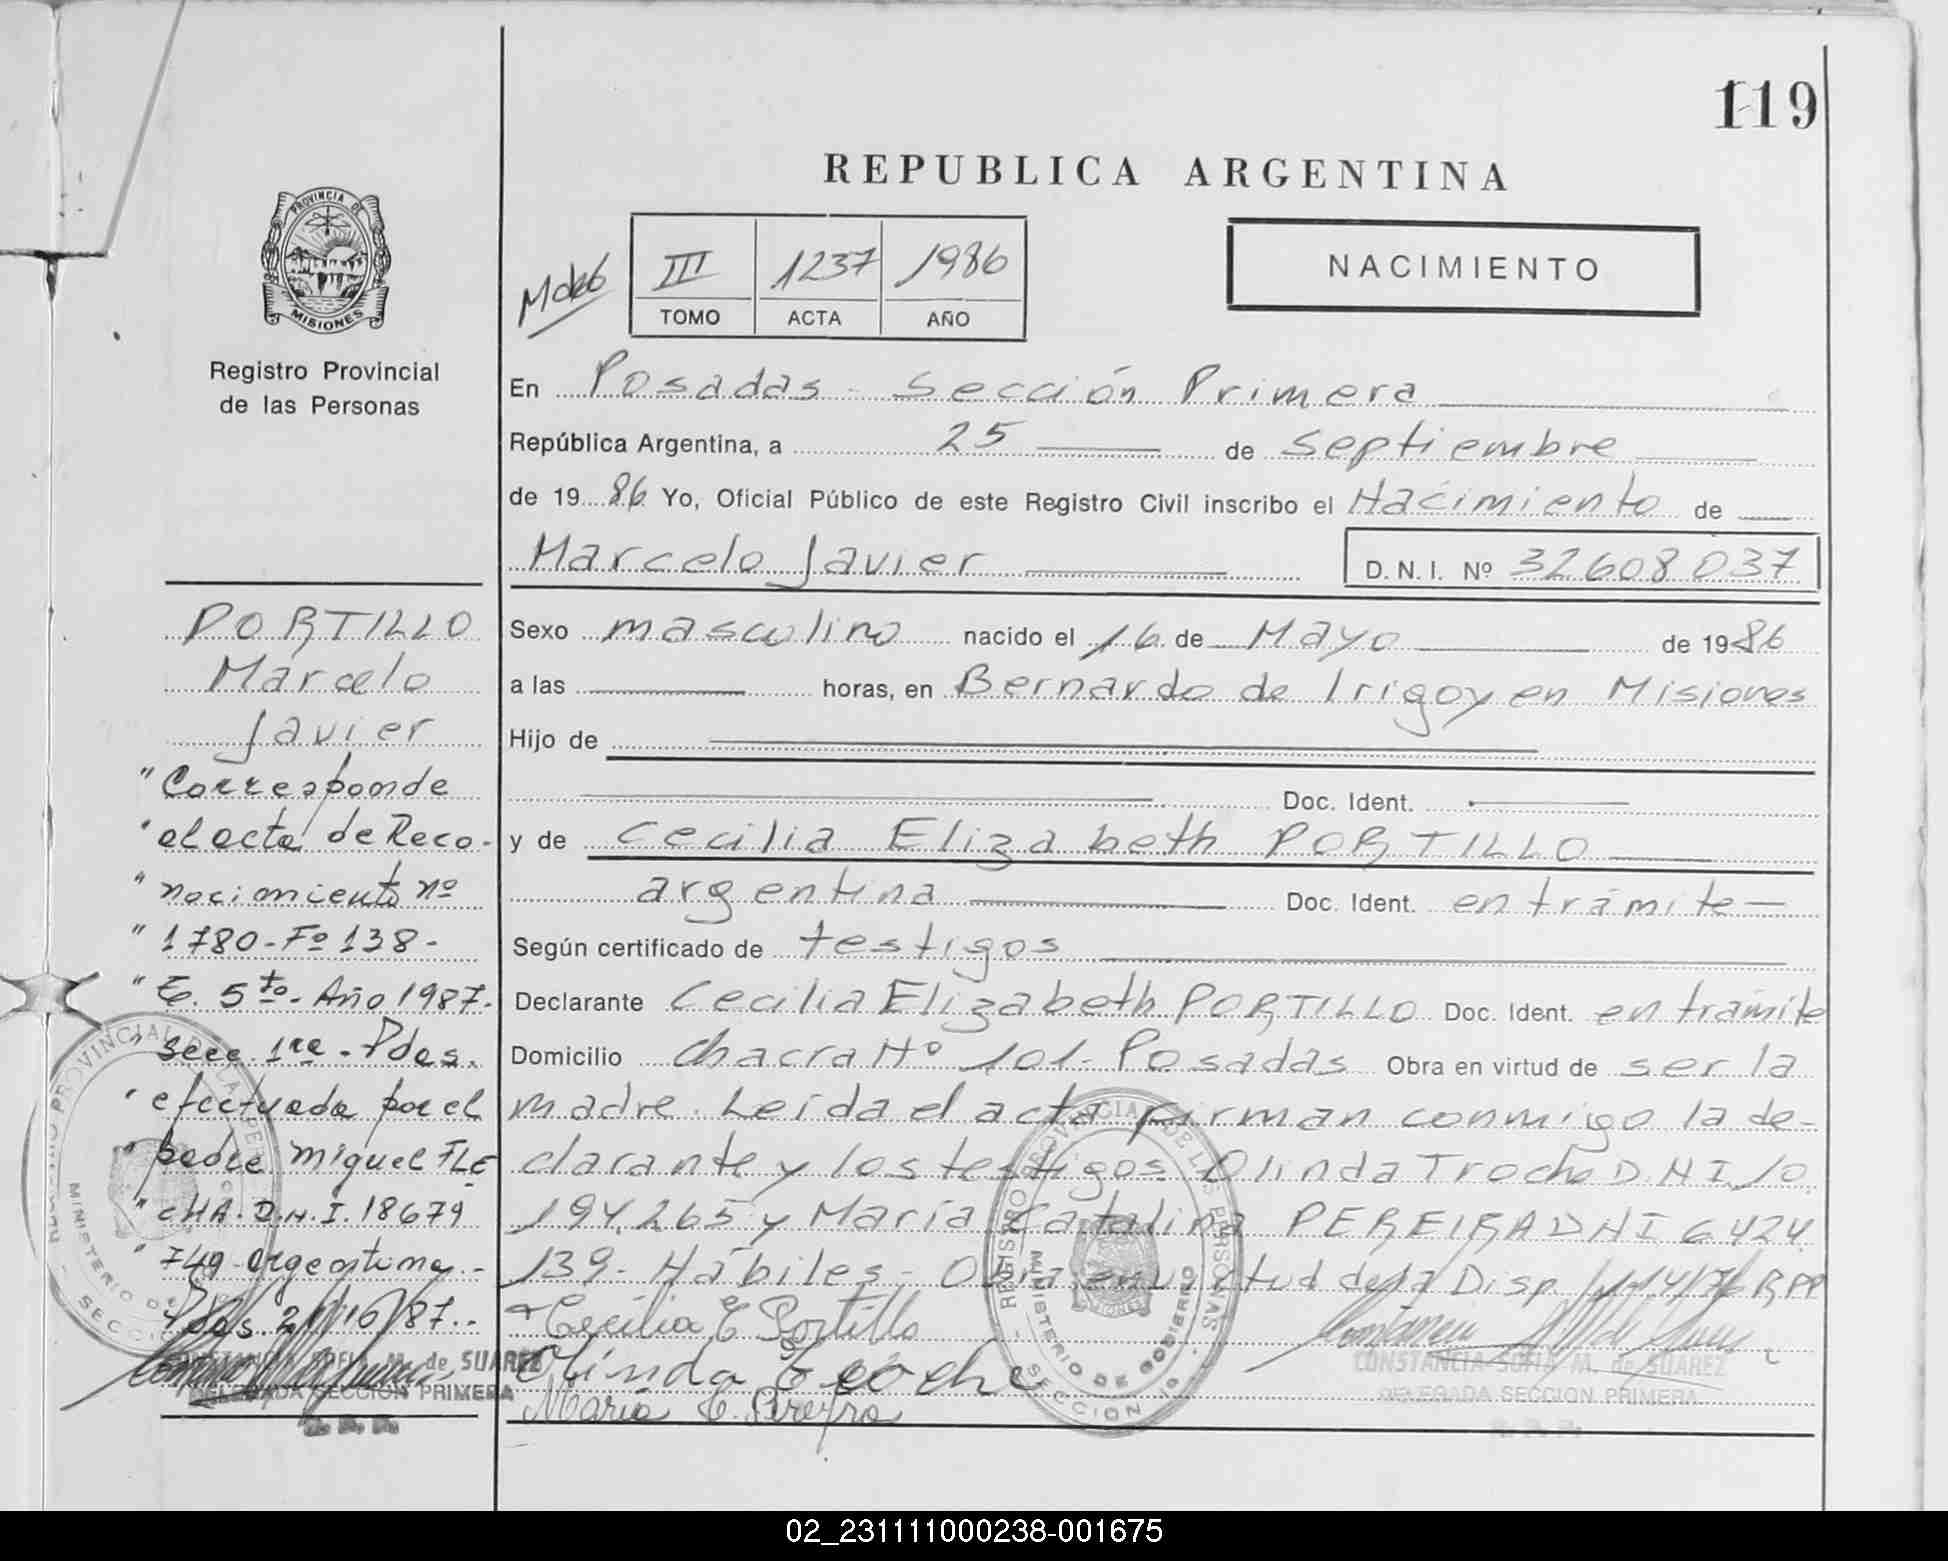 119
REPUBLICA ARGENTINA
PROVINCIA DE
MISIONES
Registro Provincial
de las Personas
III 1237 1986
TOMO ACTA AÑO
NACIMIENTO
En Posadas - Sección Primera
República Argentina, a 25 de septiembre
de 19 86 Yo, Oficial Público de este Registro Civil inscribo el Nacimiento de
Marcelo Javier D.N.I. Nº 32608037
Sexo masculino nacido el 16 de Mayo de 1986
a las horas, en Bernardo de Irigoyen Misiones
Hijo de
Doc. Ident.
y de Cecilia Elizabeth PORTILLO
argentina Doc. Ident. en trámite
Según certificado de testigos
Declarante Cecilia Elizabeth PORTILLO Doc. Ident. en trámite
Domicilio Chacra Nº 101- Posadas Obra en virtud de ser la
madre. Leída el acta firman conmigo la de-
clarante y los testigos Olinda Troche D.N.I 10.
194.265 y María Catalina PEREIRA DNI 6424.
139- Hábiles- Obra en virtud de la Disp. RPP
Cecilia E Portillo
Olinda Troche
Maria C. Pereyra
CONSTANCIA SOFIA M. de SUAREZ
DELEGADA SECCION PRIMERA
PORTILLO
Marcelo
Javier
"Corresponde
"al acta de Reco-
"nocimiento nº
"1780-Fº 138-
"T. 5to- Año 1987-
"Secc. 1ra - Pdas.
"efectuada por el
"padre Miguel FLE
"CHA. D.N.I. 18679
"749 argentino.-
Pdas. 21/10/87.-
CONSTANCIA SOFIA M. de SUAREZ
DELEGADA SECCION PRIMERA
REGISTRO PROVINCIAL DE LAS PERSONAS
MINISTERIO DE GOBIERNO
SECCION 1º
02_231111000238-001675